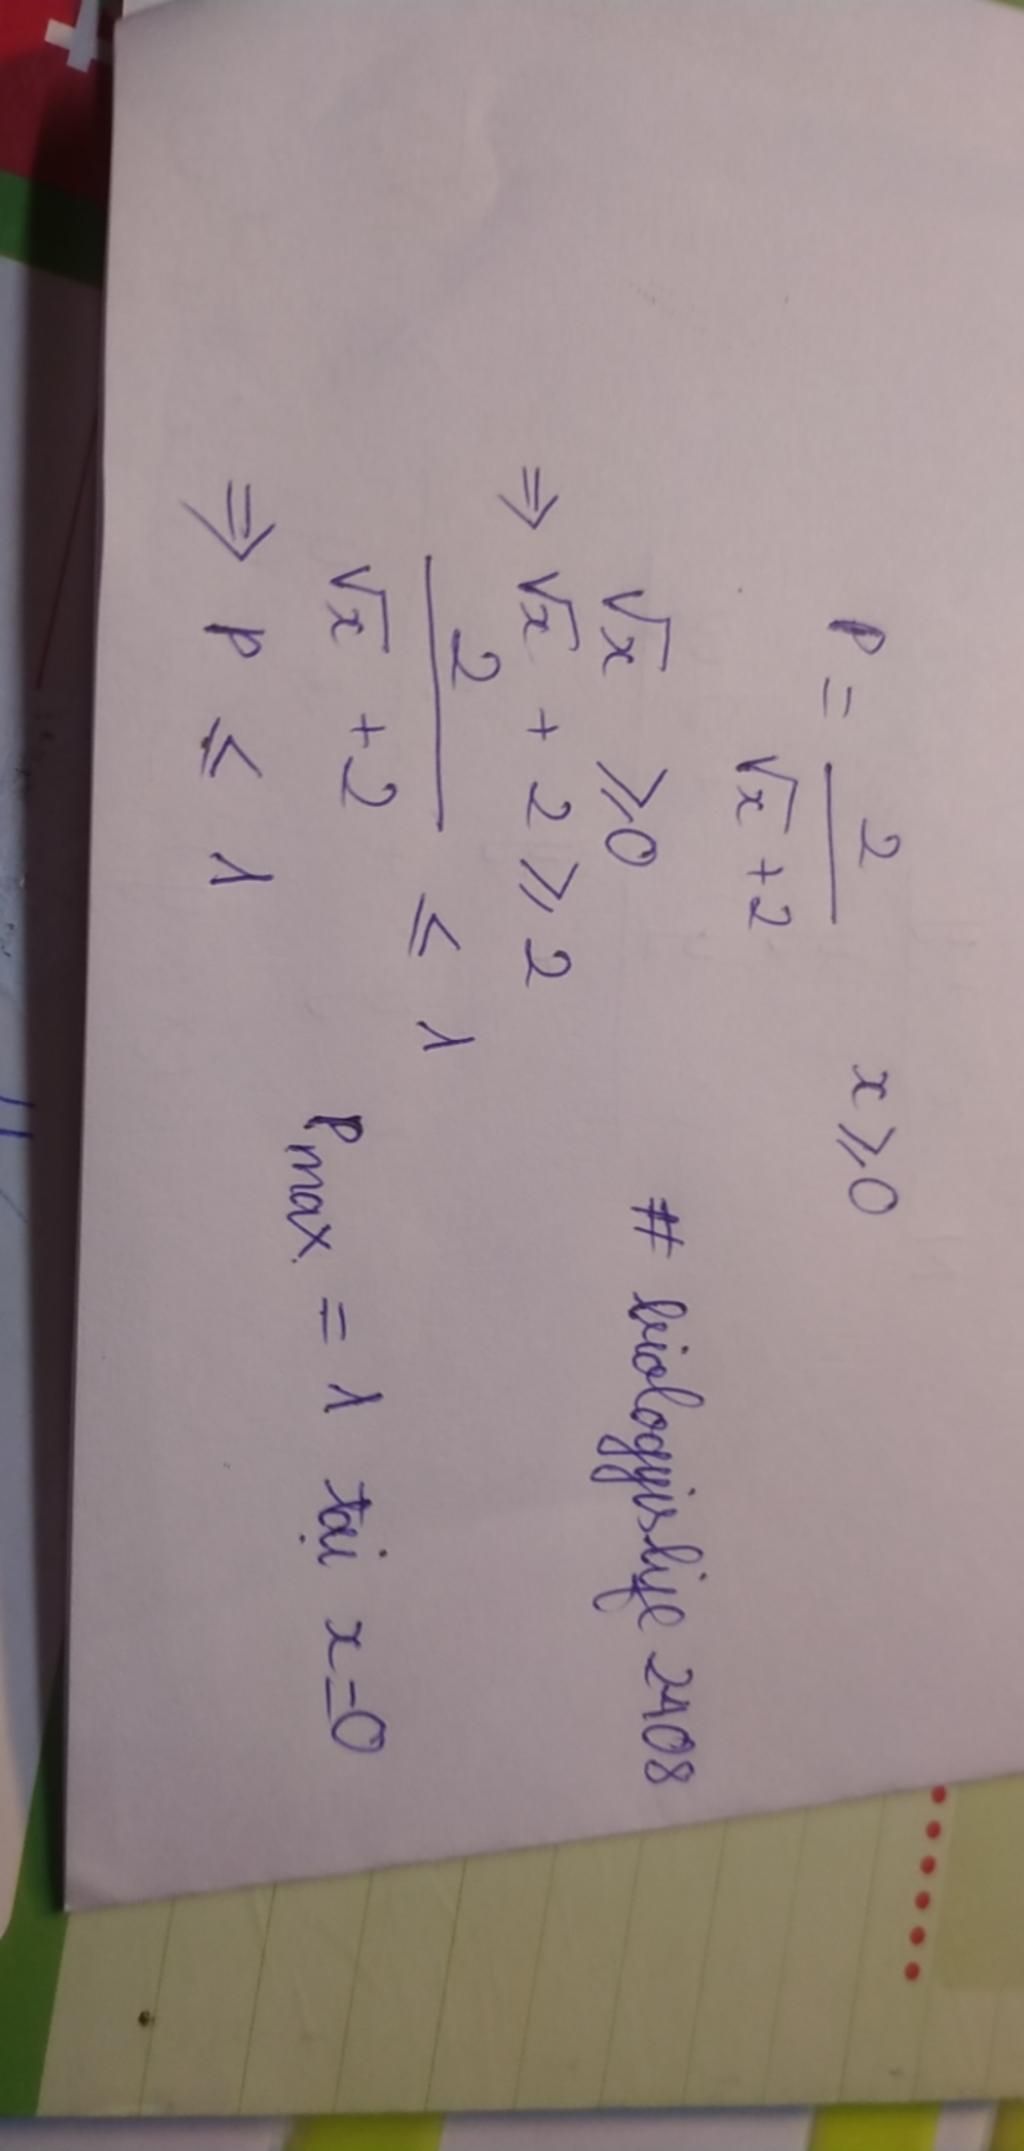 P = 2/(√x + 2) x ⩾ 0
√x ⩾ 0 # biologyislife 2408
⇒ √x + 2 ⩾ 2
2/(√x + 2) ⩽ 1
⇒ P ⩽ 1 Pmax = 1 tại x=0